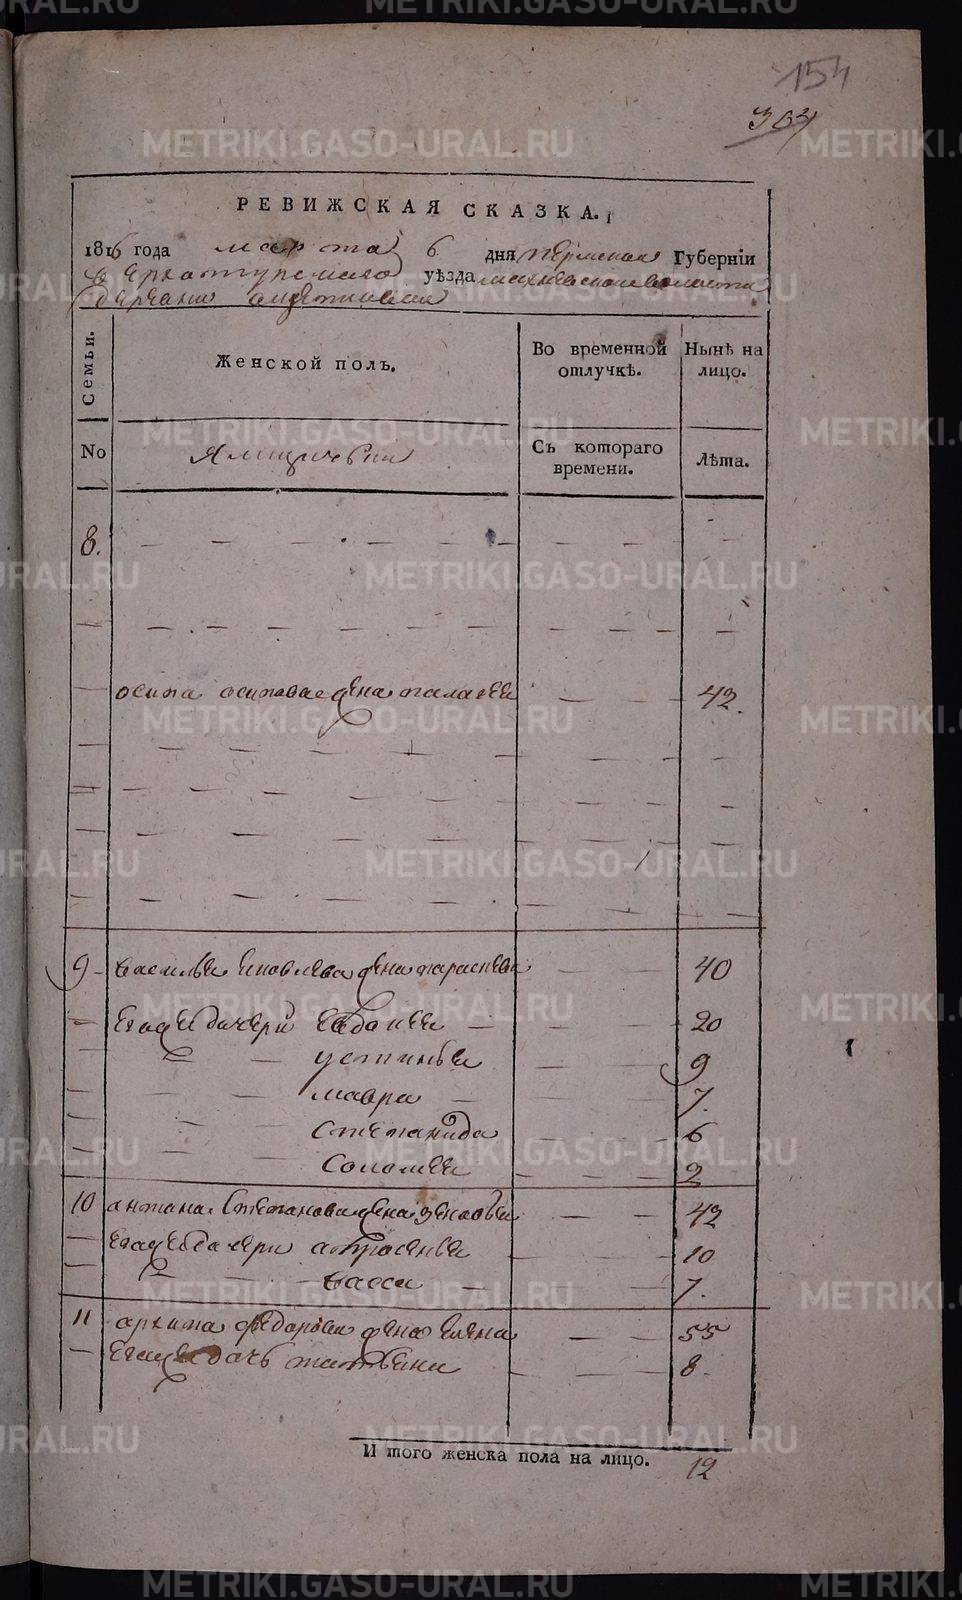 154
303
РЕВИЖСКАЯ СКАЗКА.
1816 года марта 6 дня Пермская Губернїи
верхотурскаго уѣзда махневскои волости
деревни
Семьи.
Женской полъ.
Во временной отлучкѣ.
Нынѣ на лицо.
No
Ямщичьви
Съ котораго времени.
Лѣта.
8.
осипа осипова жена палагея 42.
9 василья яковлева жена парасковья 40
Его же дочери Евдокея 20
устинья 9
мавра 7.
степанида 6
Соломея 2
10 антона Степанова жена зеновья 42
Его же дочери афросенья 10
васса 7.
11 архипа федорова жена Елена 55
Его же дочь татьяна 8.
И того женска пола на лицо. 12
METRIKI.GASO-URAL.RU